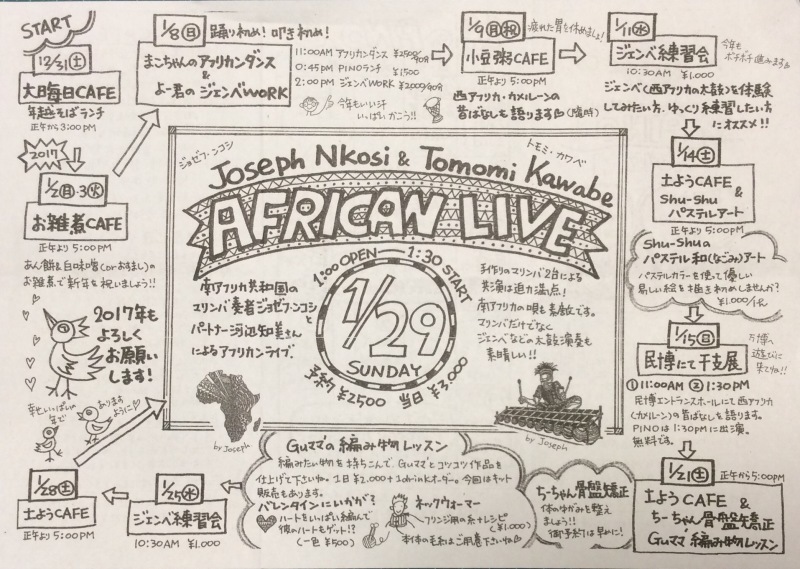 START
12/31(土)
大晦日CAFE
年越そばランチ
正午から3:00PM
2017
1/2(月)・3(火)
お雑煮CAFE
正午より 5:00PM
あん餅&白味噌(orおすまし)の
お雑煮で新年を祝いましょう!!
2017年も
よろしく
お願い
します!
幸せいっぱいの
年で
ありますように♡
1/8(日) 踊り初め! 叩き初め!
まこちゃんのアフリカンダンス
&
よー君の ジェンベWORK
11:00AM アフリカンダンス ¥2500/90分
0:45PM PINOランチ ¥1500
2:00PM ジェンベWORK ¥2000/90分
今年もいい汗
いっぱいかこう!!
1/9(月)(祝) 疲れた胃を休めましょ!
小豆粥CAFE
正午より 5:00PM
西アフリカ・カメルーンの
昔ばなしも語ります (臨時)
1/11(水)
ジェンベ練習会
今年も
ボチボチ進みます
10:30AM ¥1.000
ジェンベ(西アフリカの太鼓)を体験
してみたい方、ゆっくり練習したい方
にオススメ!!
1/14(土)
土ようCAFE
&
Shu-Shu
パステルアート
正午より 5:00PM
Shu-Shuの
パステル和(なごみ)アート
パステルカラーを使って優しい
易しい絵を描き初めしませんか?
¥1,000/1化
1/15(日)
民博にて干支展
万博へ
遊びに
来てね!!
①11:00AM ②1:30PM
民博エントランスホールにて西アフリカ
(カメルーン)の昔ばなしを語ります。
PINOは1:30PMに出演。
無料です。
1/21(土) 正午から5:00PM
土ようCAFE &
ちーちゃん骨盤矯正
Guママ 編み物レッスン
ちーちゃん骨盤矯正
体のゆがみを整え
ましょう!!
御予約は早めに!
Guママの編み物レッスン
編みたい物を持ちこんで、Guママとコツコツ作品を
仕上げて下さいね。1日¥2.000+1drinkオーダー。今回はキット
販売もあります。
バレンタインにいかが?
ハートをいっぱい編んで
彼のハートもゲット!?
(一色 ¥500)
ネックウォーマー
フリンジ用の糸+レシピ
(¥1.000)
本体の毛糸はご用意下さいね
1/25(水)
ジェンベ練習会
10:30AM ¥1.000
1/28(土)
土ようCAFE
正午より 5:00PM
ジョゼフ・ンコシ
トモミ・カワベ
Joseph Nkosi & Tomomi Kawabe
AFRICAN LIVE
1:00 OPEN 1:30 START
1/29
SUNDAY
予約 ¥2500 当日 ¥3,000
南アフリカ共和国の
マリンバ奏者ジョゼフ・ンコシと
パートナー河辺知美さん
によるアフリカンライブ。
手作りのマリンバ2台による
共演は迫力満点!
南アフリカの唄も素敵です。
マリンバだけでなく
ジェンベなどの太鼓演奏も
素晴しい!!
by Joseph
by Joseph